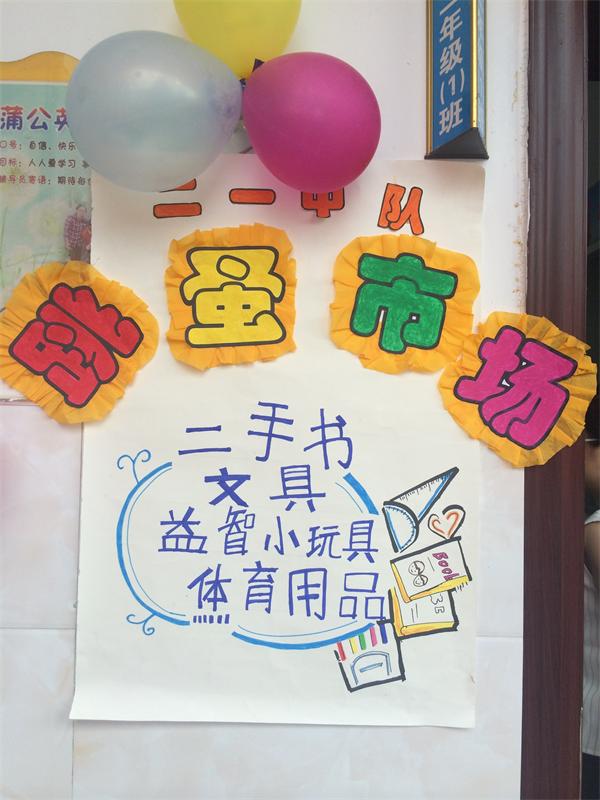 二年级(1)班
蒲公英
口号：自信、快乐
目标：人人爱学习
辅导员寄语：期待每
二一中队
跳蚤市场
二手书
文具
益智小玩具
体育用品
Book